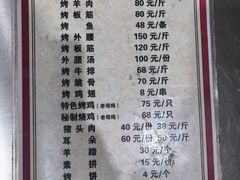 烤羊肉 80元/斤
烤板筋 80元/斤
烤鱼 48元/条
烤外腰 150元/斤
烤板筋 120元/斤
外腰汤 100元/份
烤牛排 68元/斤
烤脆骨 70元/斤
烤鸡 8元/串
特色烤鸡(老母鸡) 75元/只
秘制烧鸡(老母鸡) 68元/只
猪头肉 40元/份 38元/斤
耳朵 60元/份 50元/斤
羊蹄 30元/个
素拼 15元/份
烤饼 4元/个